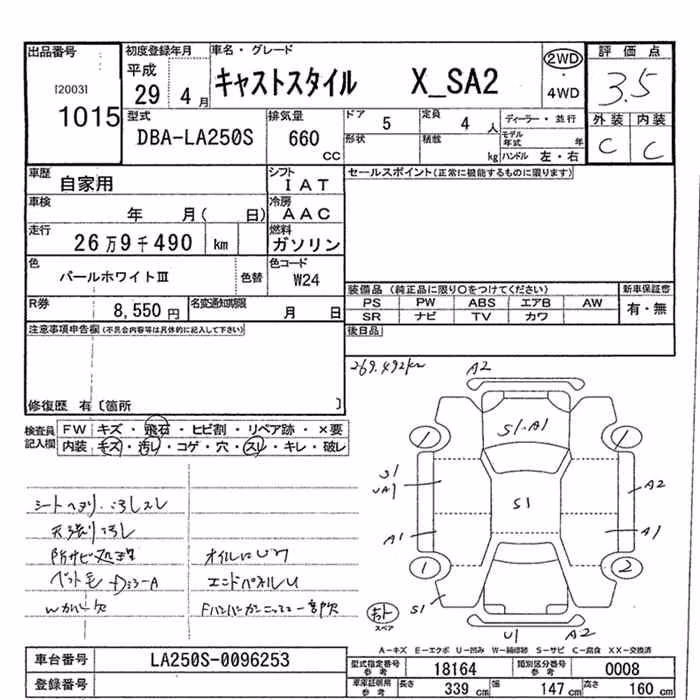 出品番号
[2003]
1015
初度登録年月
平成
29 4月
車名・グレード
キャストスタイル X_SA2
2WD
・
4WD
評価点
3.5
外装 内装
C C
型式
DBA-LA250S
排気量
660
CC
ドア
5
定員
4人
ディーラー・並行
形状
積載
kg
モデル年式 年
ハンドル 左・右
車歴
自家用
シフト
IAT
セールスポイント(正常に機能するものに限ります)
車検
年 月( 日)
冷房
AAC
走行
26万9千490 km
燃料
ガソリン
色
パールホワイトⅢ
色替
色コード
W24
装備品 (純正品に限り○をつけてください)
新車保証書
PS PW ABS エアB AW
有・無
SR ナビ TV カワ
R券
8,550円
名変通知期限
月 日
後日品
注意事項申告欄(不具合内容等は具体的に記入して下さい)
修復歴 有〔箇所 〕
269.492km
A2
検査員記入欄
FW キズ・飛石・ヒビ割・リペア跡・×要
内装 キズ・汚レ・コゲ・穴・スレ・キレ・破レ
シートヘタリ・汚レスレ
天張リ汚レ
オイルにじみ
エンドパネルU
1
S1・A1
1
S1
UA1
S1
A2
A1
A1
1
2
S1
スペア
U1
A2
A-キズ E-エクボ U-凹み W-補修跡 S-サビ C-腐食 XX-交換済
車台番号
LA250S-0096253
登録番号
型式指定番号
参考
18164
類別区分番号
参考
0008
車庫証明用
参考
長さ 339 cm
幅 147 cm
高さ 160 cm